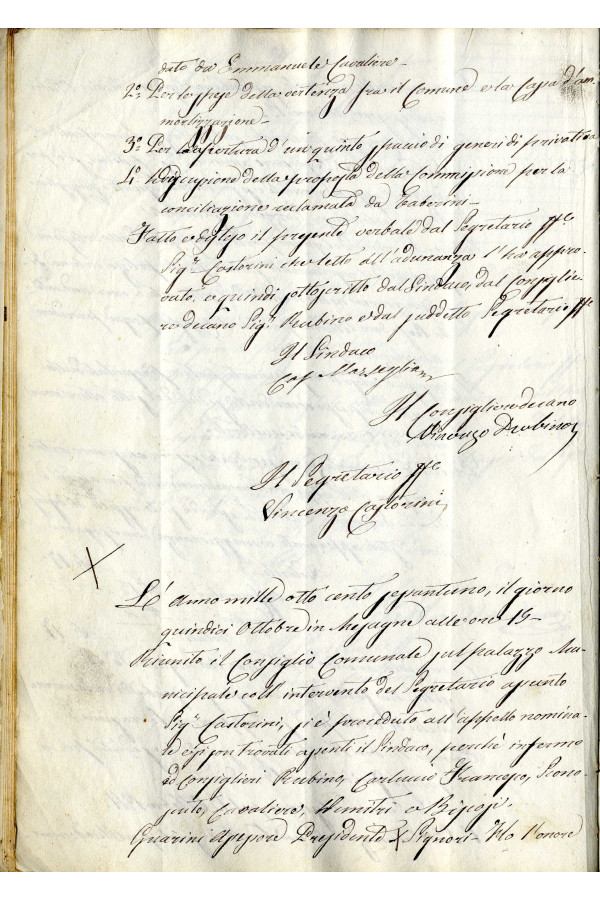 dato da Emmanuele Cavaliere_
2º Per le spese della vertenza fra il Comune e la Cassa d'am-
mortizzazione_
3º Per l'apertura d'un quinto spaccio di generi di privativa
4º discussione della proposta della Commissione per la
conciliazione reclamata da Taberini_
Fatto e disteso il presente verbale dal Segretario ff:e
Sigr Castorini che letto all'adunanza l'ha appro-
vato, e quindi sottoscritto dal Sindaco, dal Consiglie-
re decano Sigr Rubino e dal suddetto Segretario ff:e
Il Sindaco
Il Consigliere decano
Vincenzo Rubino
Il Segretario ff:e
Vincenzo Castorini
L'anno mille otto cento sessantuno, il giorno
quindici Ottobre in Mesagne alle ore 19_
Riunito il Consiglio Comunale sul palazzo Mu-
nicipale coll'intervento del Segretario assunto
Sigr Castorini, si è proceduto all'appello nomina-
le e si son trovati assenti il Sindaco, perchè infermo
ed Consiglieri Rubino, Carluccio Francesco,
Cavaliere, Dimitri e
Guarini Assessore Presidente Signori_ Ho l'onore